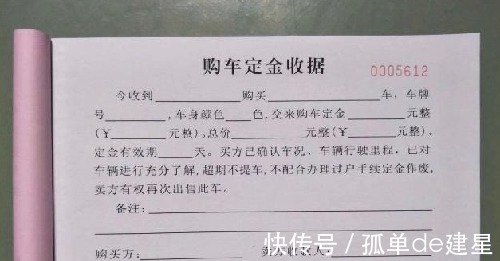 购车定金收据
0005612
今收到________购买________车，车牌
号________，车身颜色____色，交来购车定金________元整
（￥________元整），总价________元整（￥________元整），
定金有效期____天。买方已确认车况、车辆行驶里程，已对
车辆进行充分了解，超期不提车，不配合办理过户手续定金作废，
卖方有权再次出售此车。
备注：
购买方：
快传号 / 孤单de建星